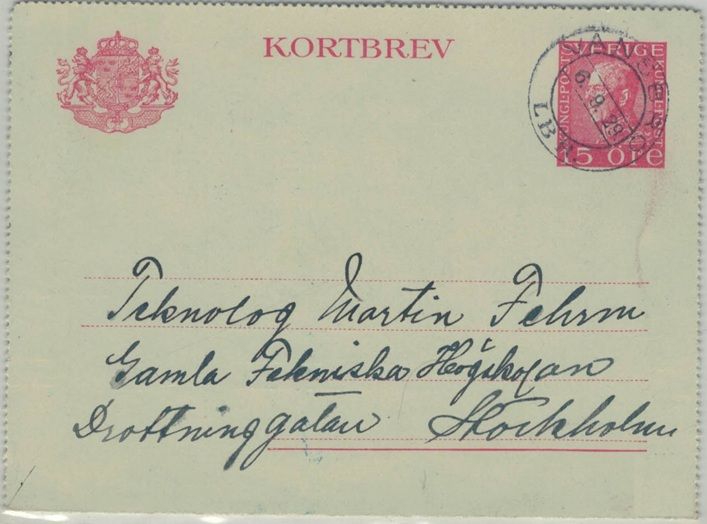 KORTBREV
SVERIGE
15 ÖRE
6.9.29
LBR
Teknolog Martin Fehrm
Gamla Tekniska Högskolan
Drottninggatan Stockholm